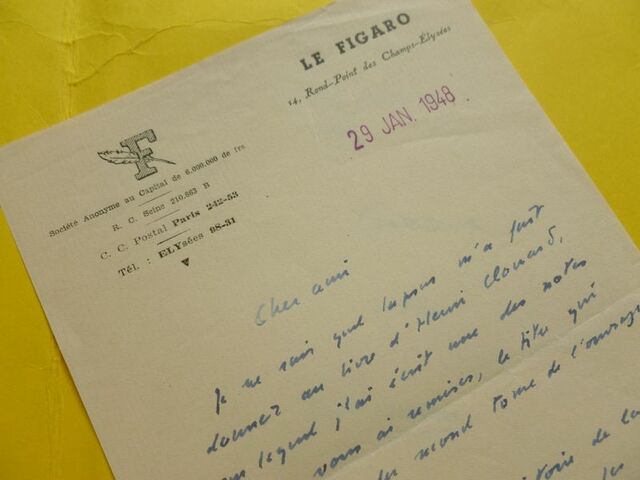 LE FIGARO
14, Rond-Point des Champs-Élysées
29 JAN. 1948
F
Société Anonyme au Capital de 6.000.000 de frs
R. C. Seine 210.863 B
C. C. Postal Paris 242-53
Tél. : ELYsées 98-31
Cher ami
Je ne sais quel lapsus m'a fait
donner au livre d'Henri Clouard,
lequel j'ai écrit une des notes
vous ai remises, le titre qui
du second tome de l'ouvrage
de la